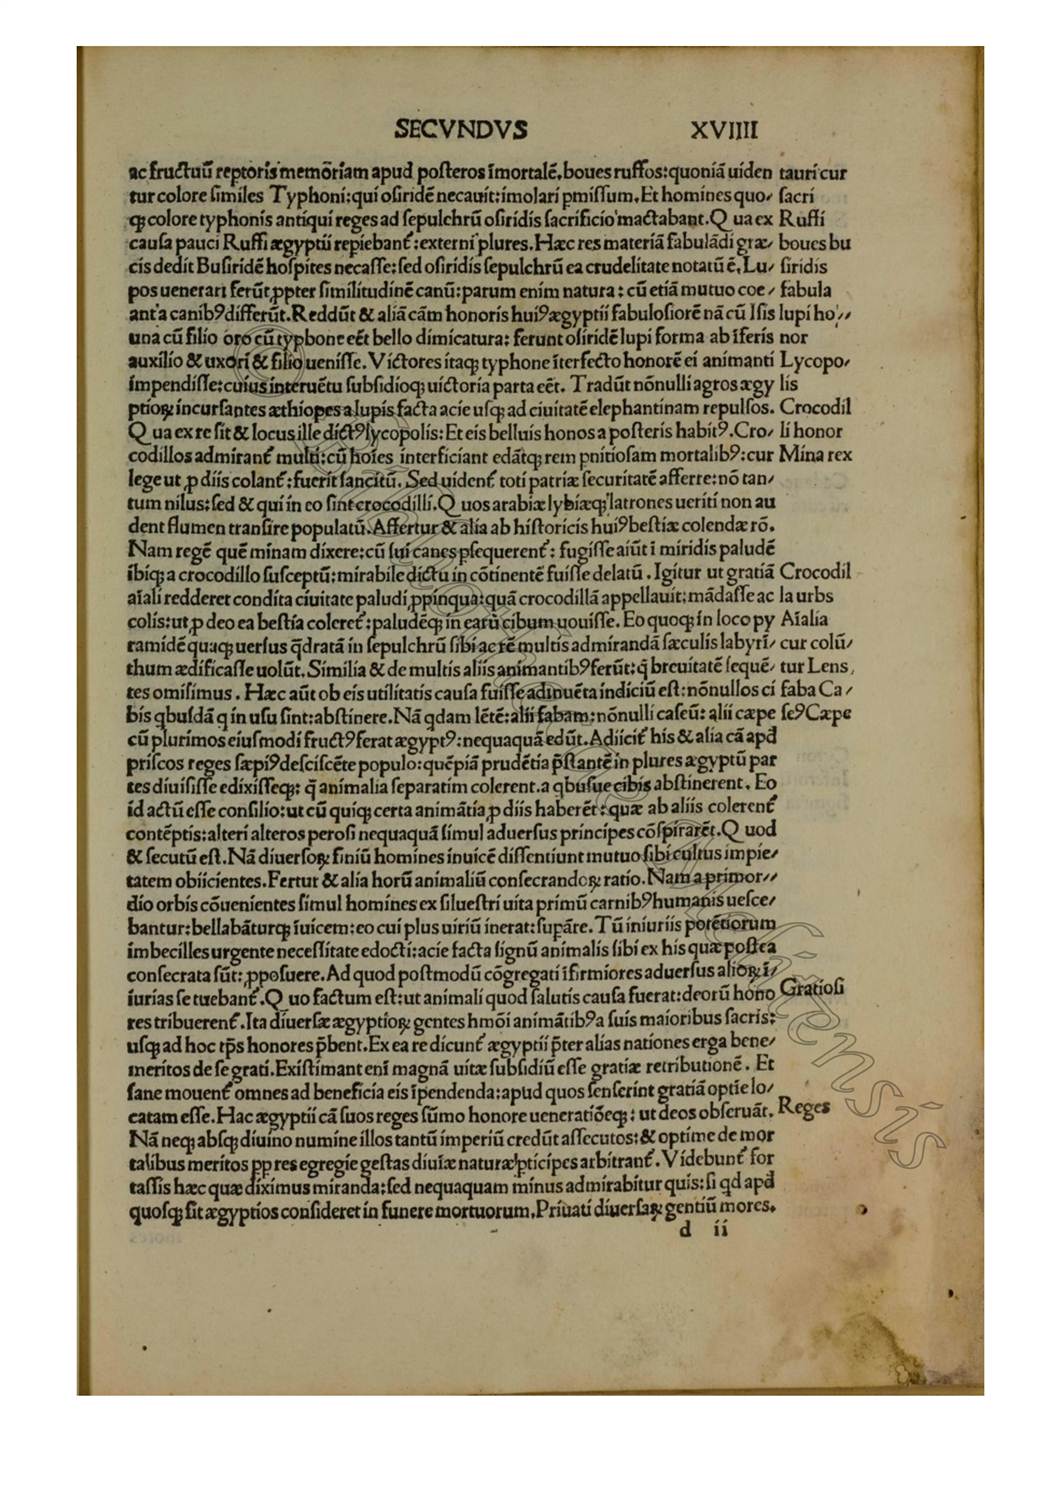 SECVNDVS XVIIII
ac fructuũ reptoris memoriam apud posteros ĩmortalẽ, boues ruffos: quoniã uiden tauri cur
tur colore similes Typhoni: qui osiridẽ necauit: imolari pmissum. Et homines quo⸗ sacri
qꝫ colore typhonis antiqui reges ad sepulchrũ osiridis sacrificio mactabant. Qua ex Ruffi
causa pauci Ruffi ægyptii repiebant̃: externi plures. Hæc res materiã fabulãdi græ⸗ boues bu
cis dedit Busiridẽ hospites necasse: sed osiridis sepulchrũ ea crudelitate notatũ ẽ. Lu⸗ siridis
pos uenerari ferũt ꝓpter similitudinẽ canũ: parum enim natura: cũ etiã mutuo coe⸗ fabula
ant a canibꝰ differũt. Reddũt & aliã cãm honoris huiꝰ ægyptii fabulosiorẽ nã cũ Isis lupi ho⸗
una cũ filio oro cũ typhone eẽt bello dimicatura: ferunt osiridẽ lupi forma ab ĩferis nor
auxilio & uxori & filio uenisse. Victores itaqꝫ typhone ĩterfecto honorẽ ei animanti Lycopo⸗
impendisse: cuius interuẽtu subsidioqꝫ uictoria parta eẽt. Tradũt nõnulli agros ægy lis
ptioꝝ incursantes æthiopes a lupis facta acie usqꝫ ad ciuitatẽ elephantinam repulsos. Crocodil
Qua ex re sit & locus ille dictꝰ lycopolis: Et eis belluis honos a posteris habitꝰ. Cro⸗ li honor
codillos admirant̃ multi: cũ hoĩes interficiant edãtqꝫ rem pnitiosam mortalibꝰ: cur Mina rex
lege ut ꝓ diis colant̃: fuerit sancitũ. Sed uident̃ toti patriæ securitatẽ afferre: nõ tan⸗
tum nilus: sed & qui in eo sint crocodilli. Quos arabiæ lybiæqꝫ latrones ueriti non au
dent flumen transire populatũ. Affertur & alia ab historicis huiꝰ bestiæ colendæ rõ.
Nam regẽ quẽ minam dixere: cũ sui canes psequerent̃: fugisse aiũt ĩ miridis paludẽ
ibiqꝫ a crocodillo susceptũ: mirabile dictu in cõtinentẽ fuisse delatũ. Igitur ut gratiã Crocodil
aĩali redderet condita ciuitate paludi ꝓpinqua: quã crocodillã appellauit: mãdasse ac la urbs
colis: ut ꝓ deo ea bestia coleret̃: paludẽqꝫ in earũ cibum uouisse. Eo quoqꝫ in loco py Aĩalia
ramidẽ quaqꝫ uersus q̃dratã in sepulchrũ sibi ac rẽ multis admirandã sæculis labyrĩ⸗ cur colũ⸗
thum ædificasse uolũt. Similia & de multis aliis animantibꝰ ferũt: q̃ breuitatẽ sequẽ⸗ tur Lens
tes omisimus. Hæc aũt ob eis utilitatis causa fuisse adinuẽta indiciũ est: nõnullos ci faba Ca⸗
bis qbusdã q in usu sint: abstinere. Nã qdam lẽtẽ: alii fabam: nõnulli caseũ: alii cæpe seꝰ Cæpe
cũ plurimos eiusmodi fructꝰ ferat ægyptꝰ: nequaquã edũt. Adiicit̃ his & alia cã apd
priscos reges sæpiꝰ desciscẽte populo: quẽpiã prudẽtia p̃stantẽ in plures ægyptũ par
tes diuisisse edixisseqꝫ: q̃ animalia separatim colerent. a qbusue cibis abstinerent. Eo
id actũ esse consilio: ut cũ quiqꝫ certa animãtia ꝓ diis haberẽt: quæ ab aliis colerent̃
contẽptis: alteri alteros perosi nequaquã simul aduersus principes cõspirarẽt. Quod
& secutũ est. Nã diuersoꝝ finiũ homines inuicẽ dissentiunt mutuo sibi cultus impie⸗
tatem obiicientes. Fertur & alia horũ animaliũ consecrandoꝝ ratio. Nam a primor⸗
dio orbis cõuenientes simul homines ex siluestri uita primũ carnibꝰ humanis uesce⸗
bantur: bellabãturqꝫ ĩuicem: eo cui plus uiriũ inerat: supãre. Tũ iniuriis potẽtiorum
imbecilles urgente necessitate edocti: acie facta signũ animalis sibi ex his quæ postea
consecrata sũt: ꝓposuere. Ad quod postmodũ cõgregati ĩfirmiores aduersus alioꝝ ĩ⸗
iurias se tuebant̃. Quo factum est: ut animali quod salutis causa fuerat: deorũ hono Gratiosi
res tribuerent̃. Ita diuersæ ægyptioꝝ gentes hmõi animãtibꝰ a suis maioribus sacris:
usqꝫ ad hoc tp̃s honores p̃bent. Ex ea re dicunt̃ ægyptii p̃ter alias nationes erga bene⸗
meritos de se grati. Existimant enĩ magnã uitæ subsidiũ esse gratiæ retributionẽ. Et
sane mouent̃ omnes ad beneficia eis ĩpendenda: apud quos senserint gratiã optĩe lo⸗
catam esse. Hac ægyptii cã suos reges sũmo honore ueneratiõeqꝫ: ut deos obseruãt. Reges
Nã neqꝫ absqꝫ diuino numine illos tantũ imperiũ credũt assecutos: & optime de mor
talibus meritos pp res egregie gestas diuiæ naturæ pticipes arbitrant̃. Videbunt̃ for
tassis hæc quæ diximus miranda: sed nequaquam minus admirabitur quis: si qd apd
quosqꝫ sit ægyptios consideret in funere mortuorum. Priuati diuersaꝝ gentiũ mores.
d ii